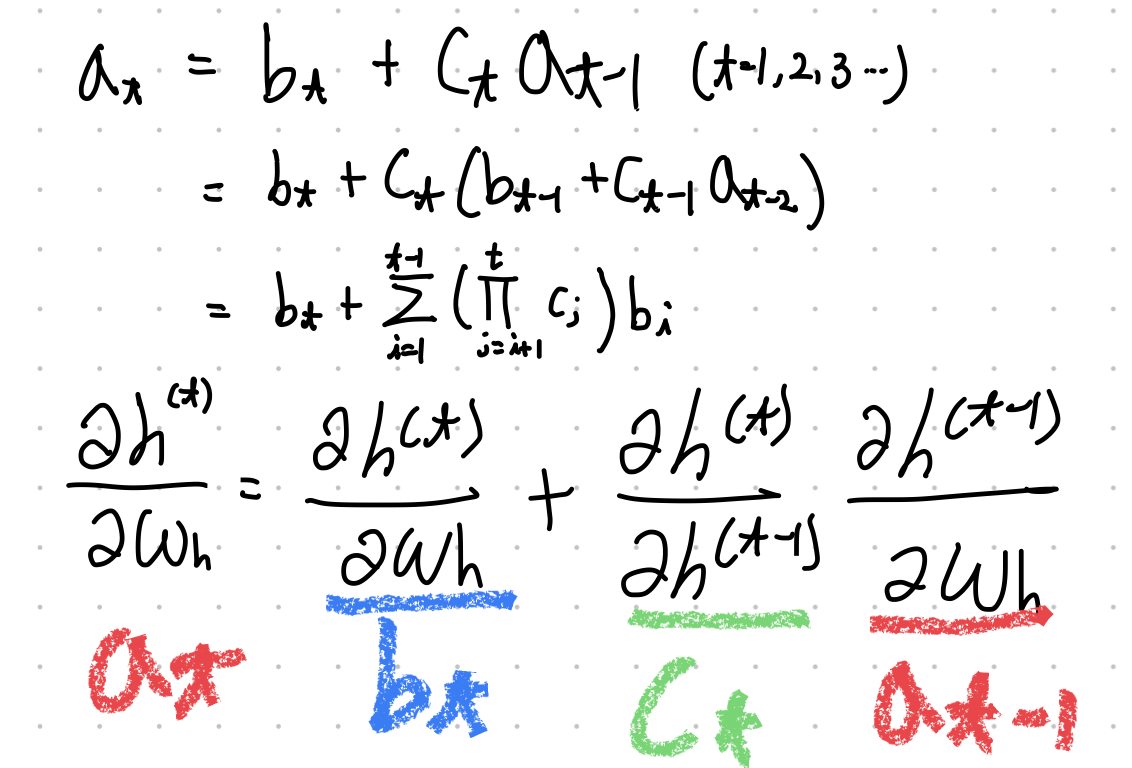 a_t = b_t + C_t a_{t-1} (t=1,2,3…)
= b_t + C_t (b_{t-1} + C_{t-1} a_{t-2})
= b_t + \sum_{i=1}^{t-1} (\prod_{j=i+1}^{t} c_j) b_i
\frac{∂h^{(t)}}{∂w_h} = \frac{∂h^{(t)}}{∂w_h} + \frac{∂h^{(t)}}{∂h^{(t-1)}} \frac{∂h^{(t-1)}}{∂w_h}
a_t b_t C_t a_{t-1}